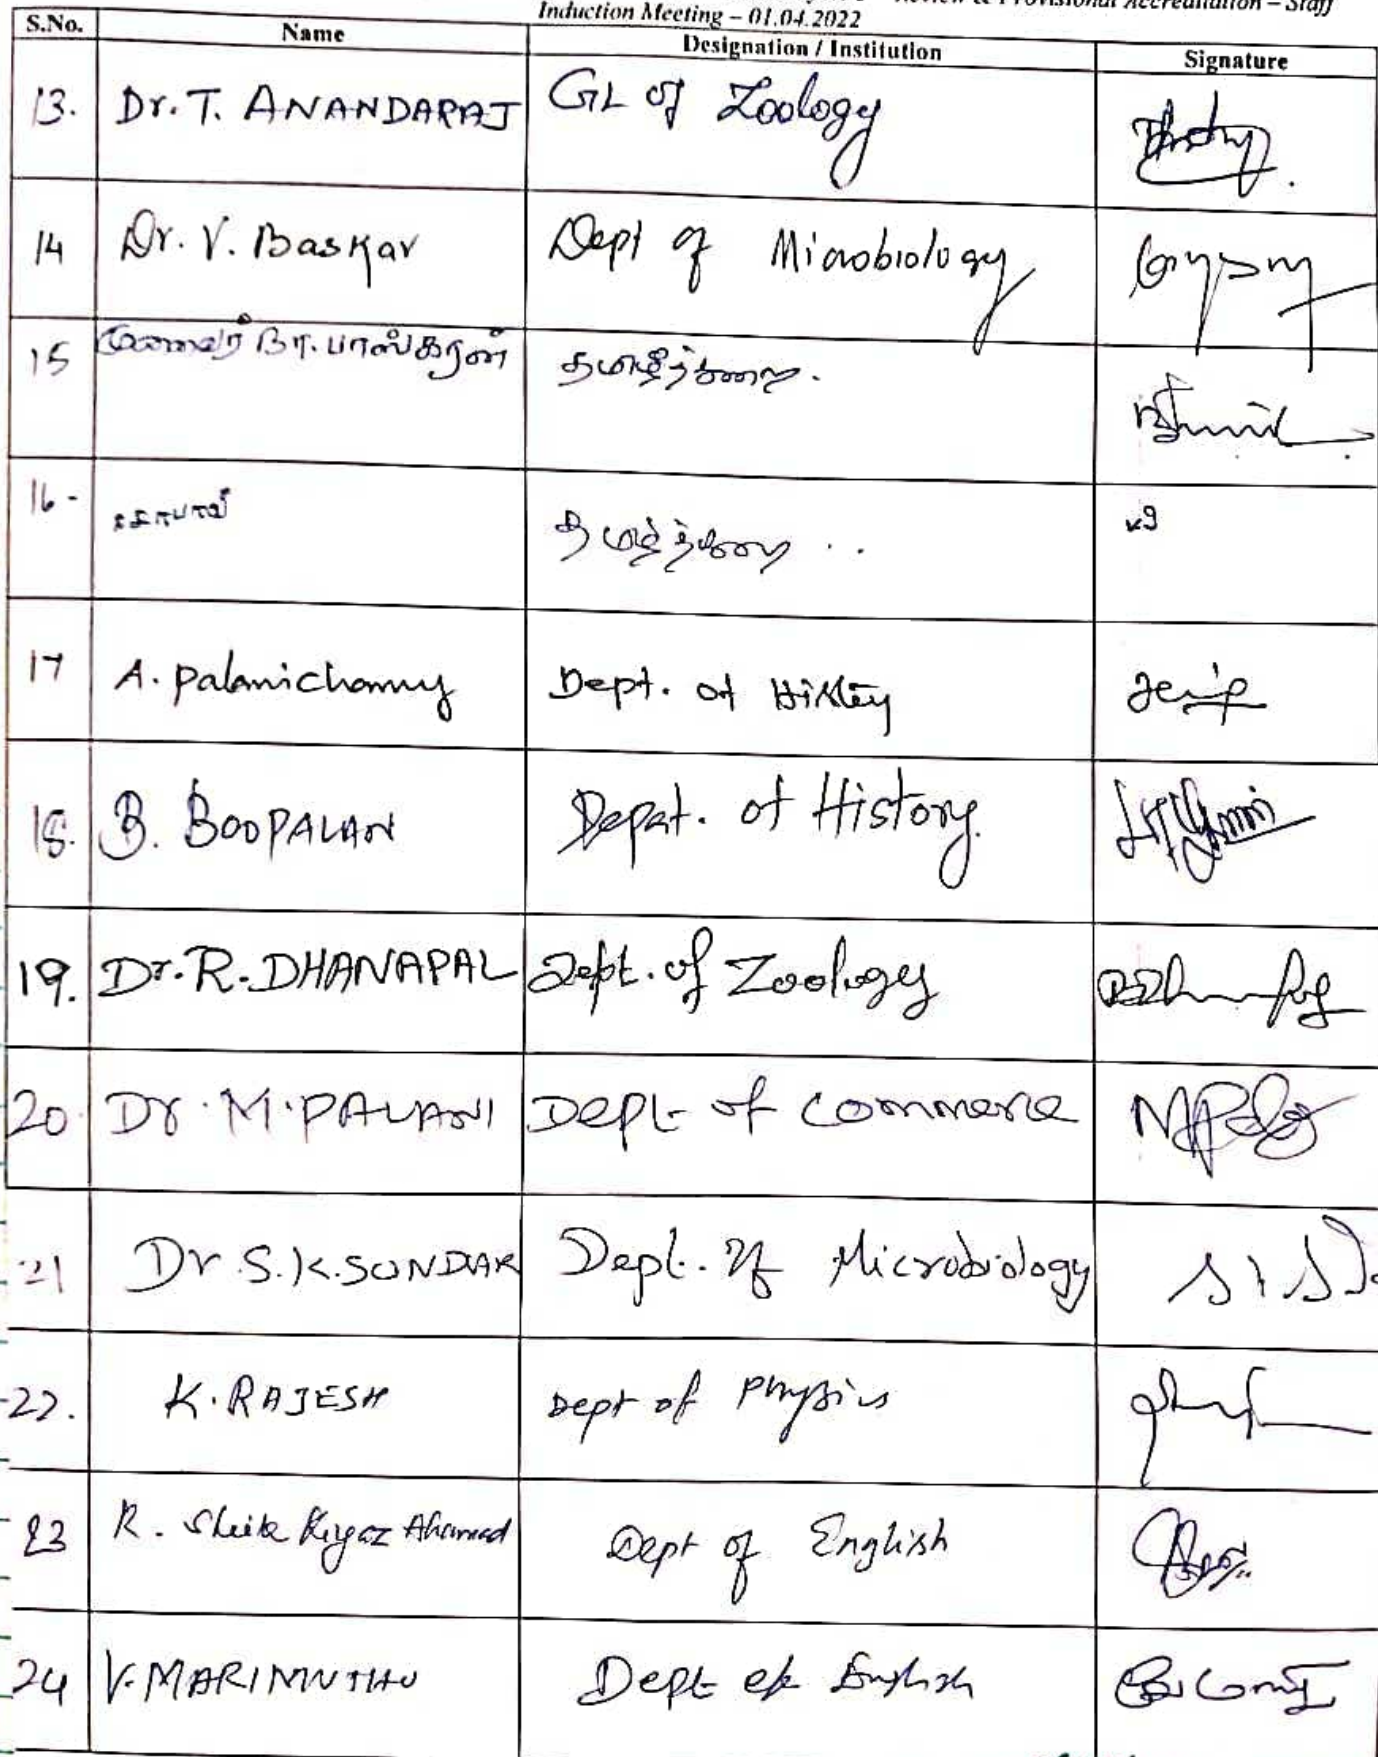 Review & Provisional Accreditation – Staff
Induction Meeting – 01.04.2022
S.No. Name Designation / Institution Signature
13. Dr. T. ANANDARAJ GL of Zoology
14 Dr. V. Baskar Dept of Microbiology
15 முனைவர் இரா. பாஸ்கரன் தமிழ்த்துறை.
16 - தமிழ்த்துறை ..
17 A. Palanichamy Dept. of History
18. B. BOOPALAN Depat. of History.
19. Dr. R. DHANAPAL Dept. of Zoology
20. Dr. M. PALANI Dept of Commerce
21 Dr. S. K. SUNDAR Dept. of Microbiology
22. K. RAJESH Dept of Physics
23 R. Sheik Ahamad Dept of English
24 V. MARIMUTHU Dept of English